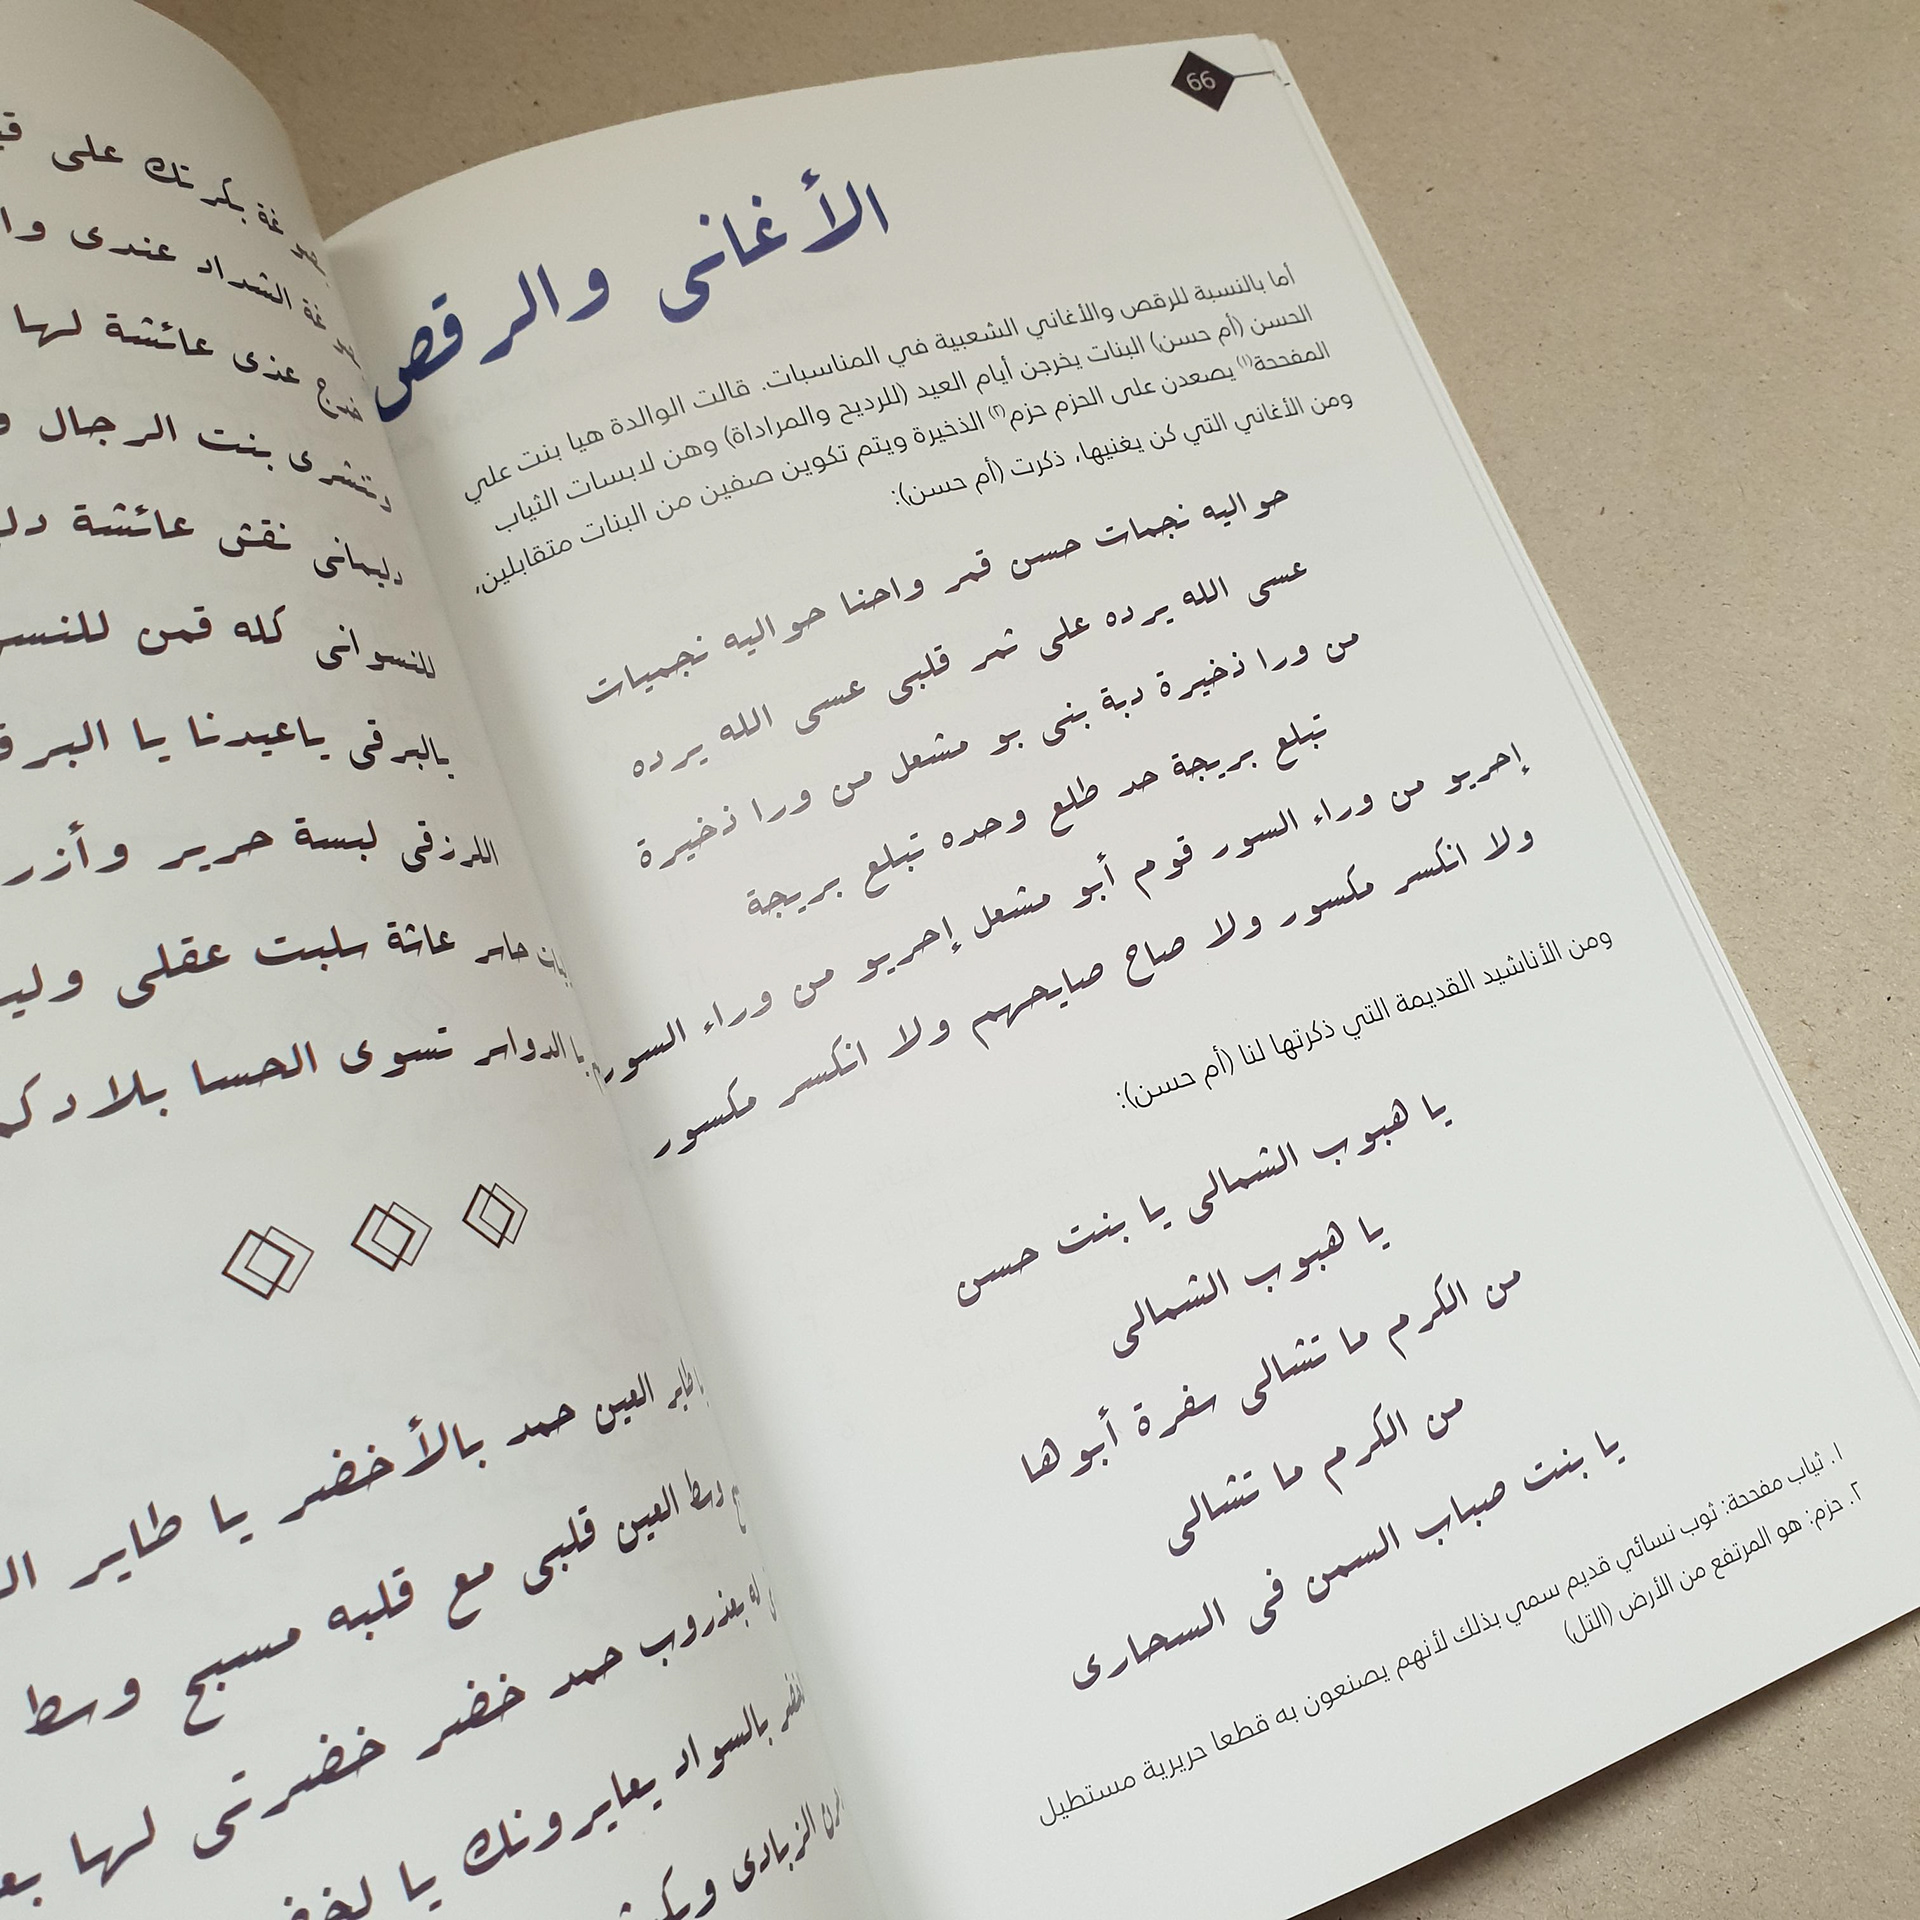 66
الأغاني والرقص
أما بالنسبة للرقص والأغاني الشعبية في المناسبات. قالت الوالدة هيا بنت علي
الحسن (أم حسن) البنات يخرجن أيام العيد (للرديح والمراداة) وهن لابسات الثياب
المفححة(١) يصعدن على الحزم حزم(٢) الذخيرة ويتم تكوين صفين من البنات متقابلين،
ومن الأغاني التي كن يغنيها، ذكرت (أم حسن):
حواليه نجمات حسن قمر واحنا حواليه نجميات
عسى الله يرده على ثمر قلبي عسى الله يرده
من ورا ذخيرة دبة بني بو مشعل من ورا ذخيرة
تبلع بريجة حد طلع وحده تبلع بريجة
إحريو من وراء السور قوم أبو مشعل إحريو من وراء السور
ولا انكسر مكسور ولا صاح صايحهم ولا انكسر مكسور
ومن الأناشيد القديمة التي ذكرتها لنا (أم حسن):
يا هبوب الشمالي يا بنت حسن
يا هبوب الشمالي
من الكرم ما تشالي سفرة أبوها
من الكرم ما تشالي
يا بنت صباب السمن في السحاري
١. ثياب مفححة: ثوب نسائي قديم سمي بذلك لأنهم يصنعون به قطعا حريرية مستطيل
٢. حزم: هو المرتفع من الأرض (التل)
بكرتك على
الشداد عندي
عذى عائشة لها
بنت الرجال
نقش عائشة
للنسواني كله قمن
يالبرقي ياعيدنا يا
اللرزقي لبسة حرير
عاشة سلبت عقلي
الدواسر تسوى الحسا بلاد
طاير العين حمد بالأخضر يا طاير
وسط العين قلبي مع قلبه مسبح وسط
بعذروب حمد خضر خضرتي لها
بالسواد يعايرونك يا
الزبادي